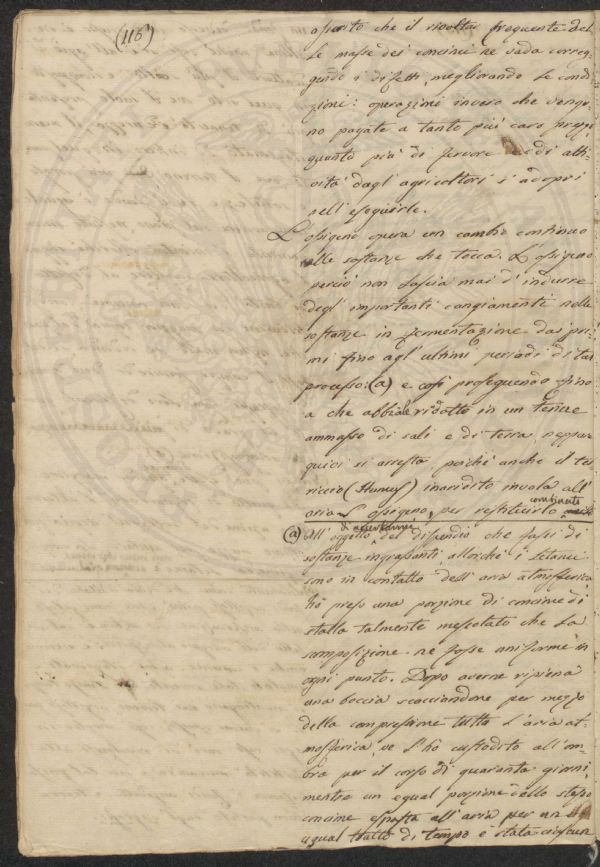 (116)
che il rivoltar frequente del
le masse dei concimi ne vada correg
gendo i difetti, migliorando le condi
zioni: operazioni invero che vengo
no pagate a tanto più caro prezzo
quanto più di fervore e di atti
vità dagl'agricoltori s'adopri
nell'eseguirle.
L'ossigeno opera un cambio continuo
nelle sostanze che tocca. L'ossigeno
perciò non lascia mai d'indurre
degl'importanti cangiamenti nelle
sostanze in fermentazione dai pri
mi fino agl'ultimi periodi di tal
processo: (a) e così proseguendo fino
a che abbiale ridotte in un tenue
ammasso di sali e di terra, neppur
quivi si arresta, poichè anche il ter
riccio (Humus) inaridito invola all'
aria l'ossigeno, per restituirlo combinato
(a) All'oggetto di del dispendio che fassi di
sostanze ingrassanti allorchè i letami
sono in contatto dell'aria atmosferica
hò preso una porzione di concime di
stalla talmente mescolato che la
composizione ne fosse uniforme in
ogni punto. Dopo averne ripiena
una boccia scacciandone per mezzo
della compressione tutta l'aria at
mosferica, ve l'hò custodito all'om
bra per il corso di quaranta giorni,
mentre un egual porzione dello stesso
concime esposta all'aria per un
egual tratto di tempo è stata